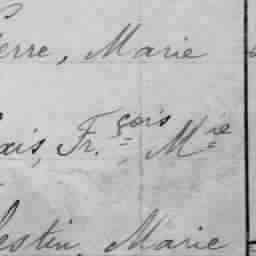 ierre, Marie
ais, Fr.çois Mie
lestin, Marie